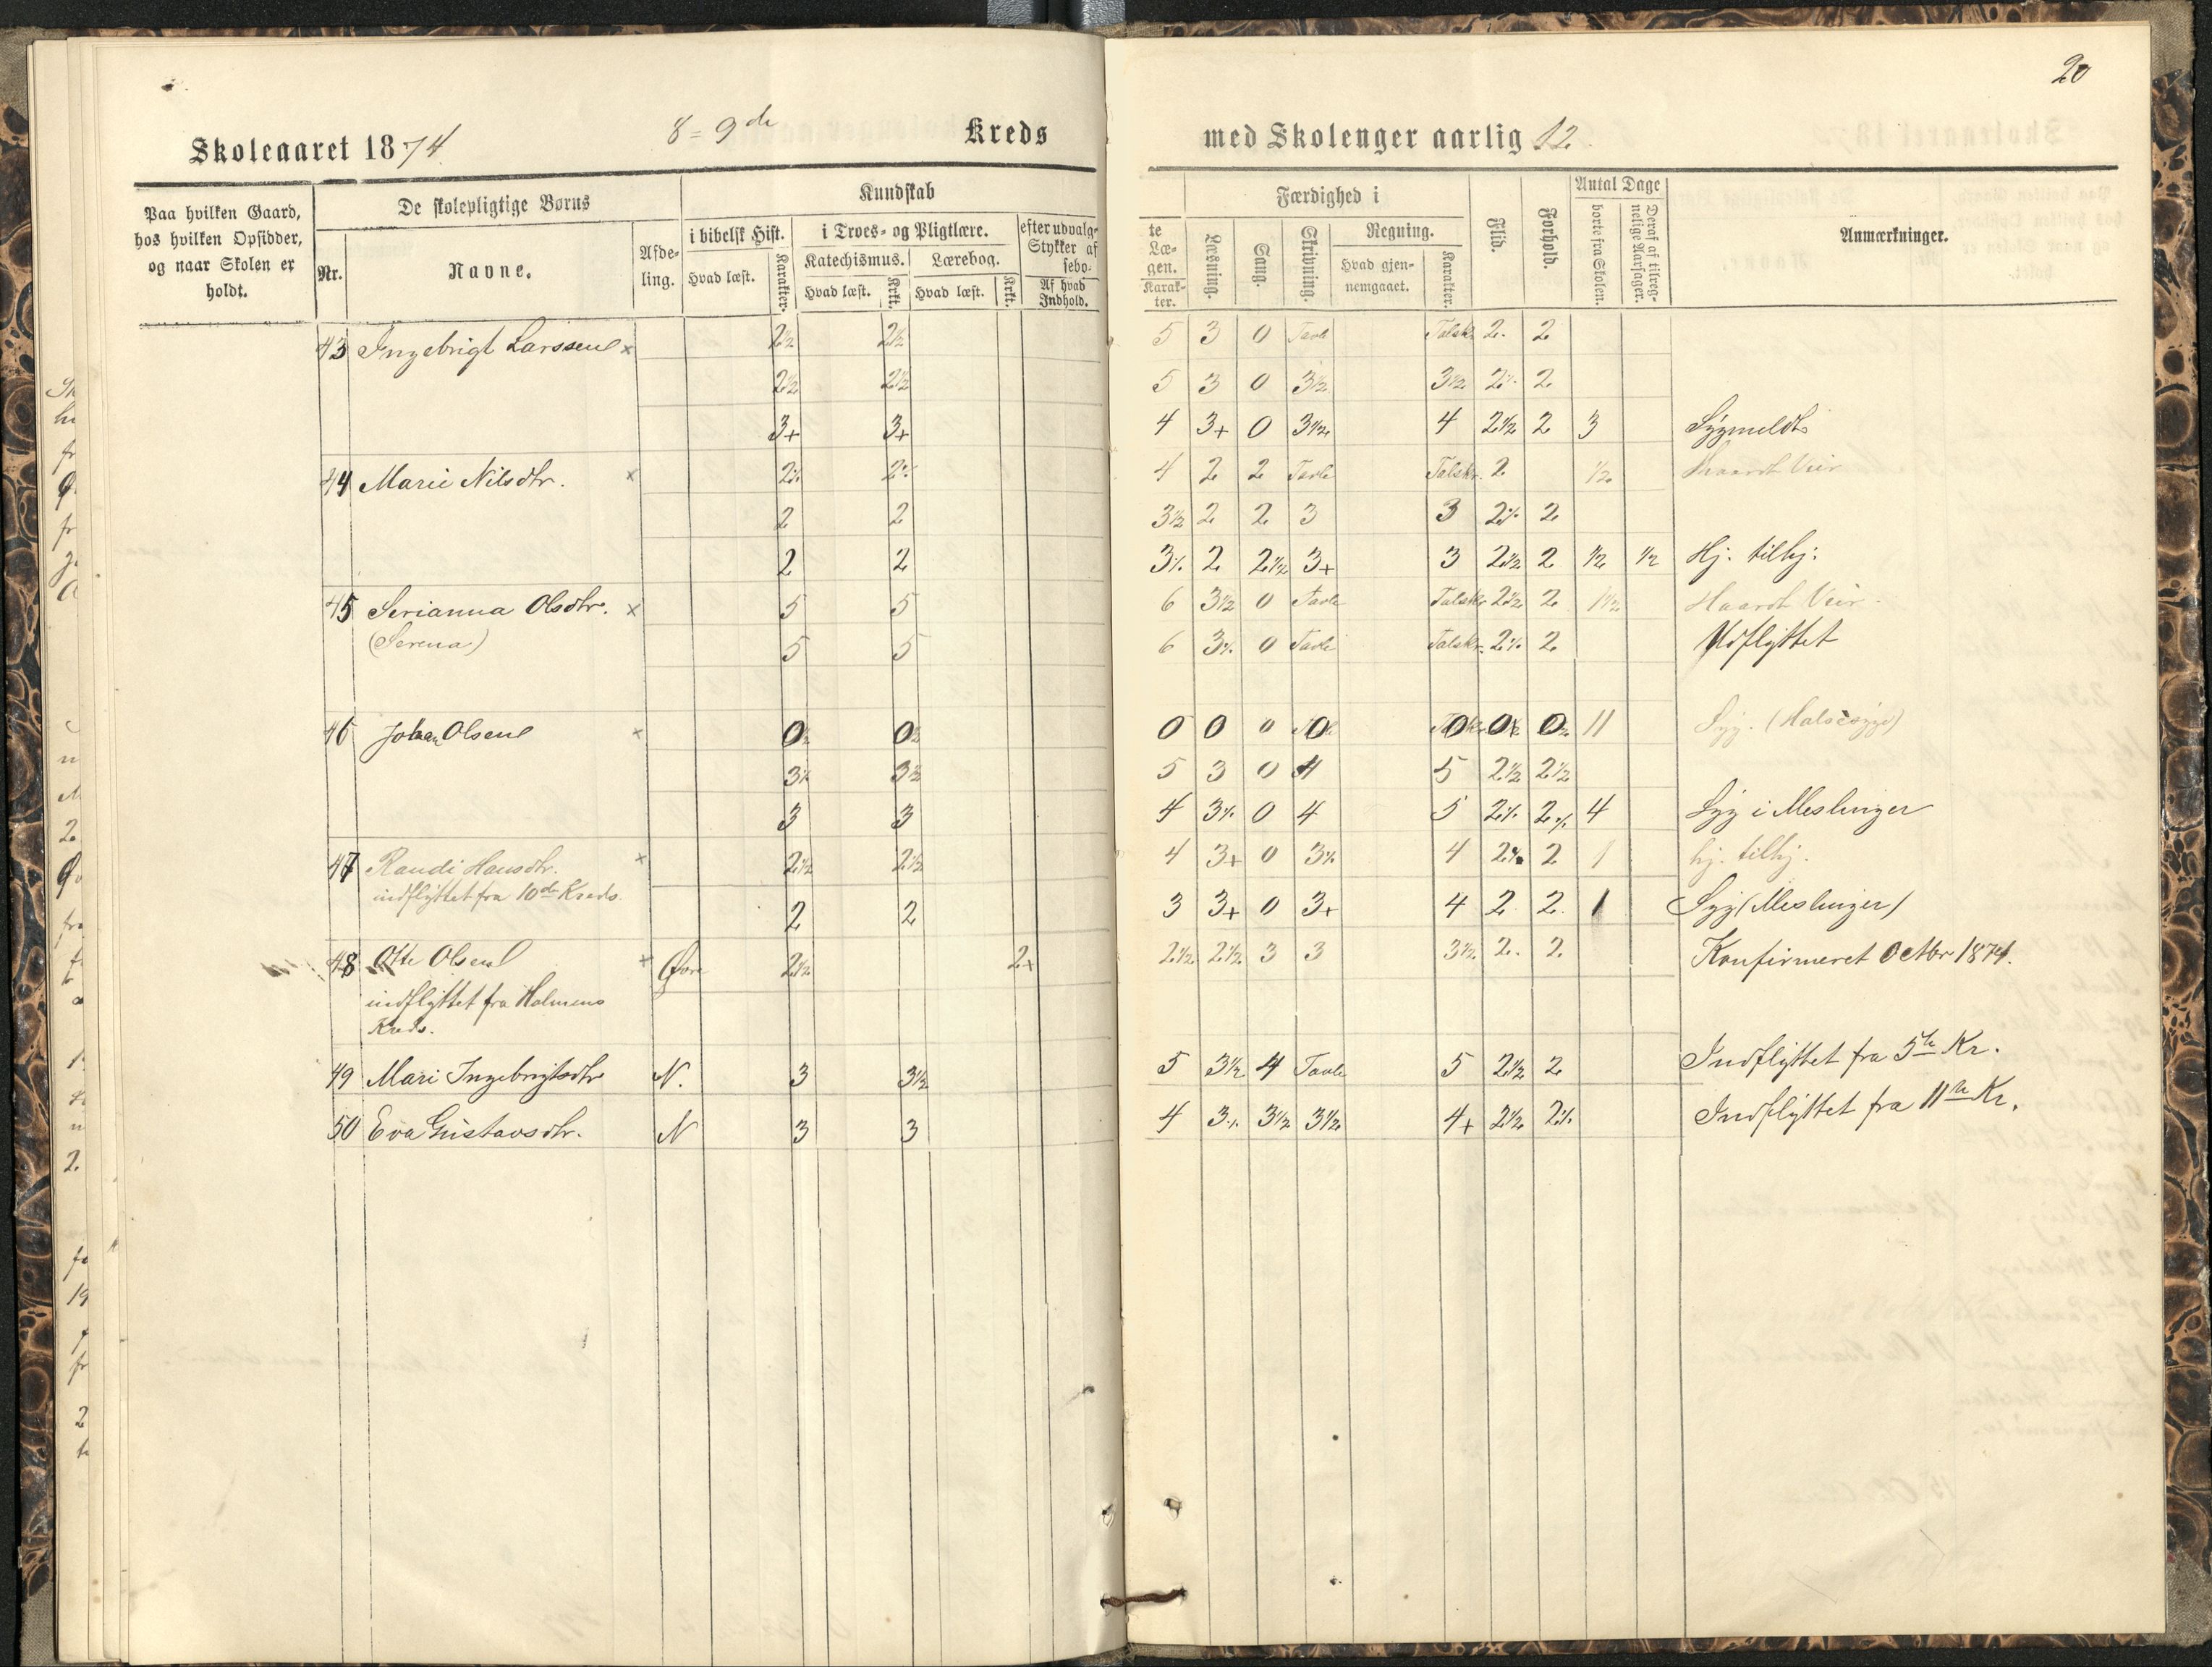 20
Skoleaaret 1874. 8=9de Kreds med Skolenger aarlig 12.
Paa hvilken Gaard, hos hvilken Opsidder, og naar Skolen er holdt.
De skolepligtige Børns
Nr. Navne. Afdeling.
Kundskab
i bibelsk Hist. Hvad læst. Karakter.
i Troes- og Pligtlære.
Katechismus. Hvad læst. Krkt.
Lærebog. Hvad læst. Krkt.
efter udvalg- Stykker af sebo-
Af hvad Indhold.
te Læ- gen. Karakter.
Færdighed i
Læsning. Sang. Skrivning.
Regning. Hvad gjennemgaaet. Karakter.
Flid. Forhold.
Antal Dage
borte fra Skolen.
Deraf af tilregnelige Aarsager.
Anmærkninger.
43 Ingebrigt Larssen x 2½ 2½ 5 3 0 Tavle Talskr. 2. 2
2½ 2½ 5 3 0 3½ 3½ 2% 2
3+ 3+ 4 3+ 0 3½ 4 2½ 2 3 Sygmeldt
44 Marie Nilsdtr. x 2% 2% 4 2 2 Tavle Talskr. 2 ½ Haardt Veir
2 2 3½ 2 2 3 3 2% 2
2 2 3% 2 2½ 3+ 3 2½ 2 ½ ½ Hj. tilhj:
45 Serianna Olsdtr. x 5 5 6 3½ 0 Tavle Talskr 2½ 2 1½ Haardt Veir
(Serena) 5 5 6 3% 0 Tavle Talskr. 2% 2 Udflyttet
46 Johan Olsen x 0 0 0 0 0 0 0 0 0 11 Syg. (Halssyge)
3% 3½ 5 3 0 4 5 2½ 2½
3 3 4 3% 0 4 5 2% 2% 4 Syg i Meslinger
47 Randi Hansdtr. x 2½ 2½ 4 3+ 0 3% 4 2% 2 1 hj. tilhj.
indflyttet fra 10de Kreds. 2 2 3 3+ 0 3+ 4 2 2. 1 Syg (Meslinger)
48 Otte Olsen x Øvre 2½ 2+ 2½ 2½ 3 3 3½ 2. 2. Konfirmeret Octbr 1874.
indflyttet fra Holmens
Kreds.
49 Mari Ingebrigtsdtr N. 3 3½ 5 3½ 4 Tavle 5 2½ 2 Indflyttet fra 5te Kr.
50 Eva Gustavsdtr. N 3 3 4 3% 3½ 3½ 4+ 2½ 2% Indflyttet fra 11te Kr.